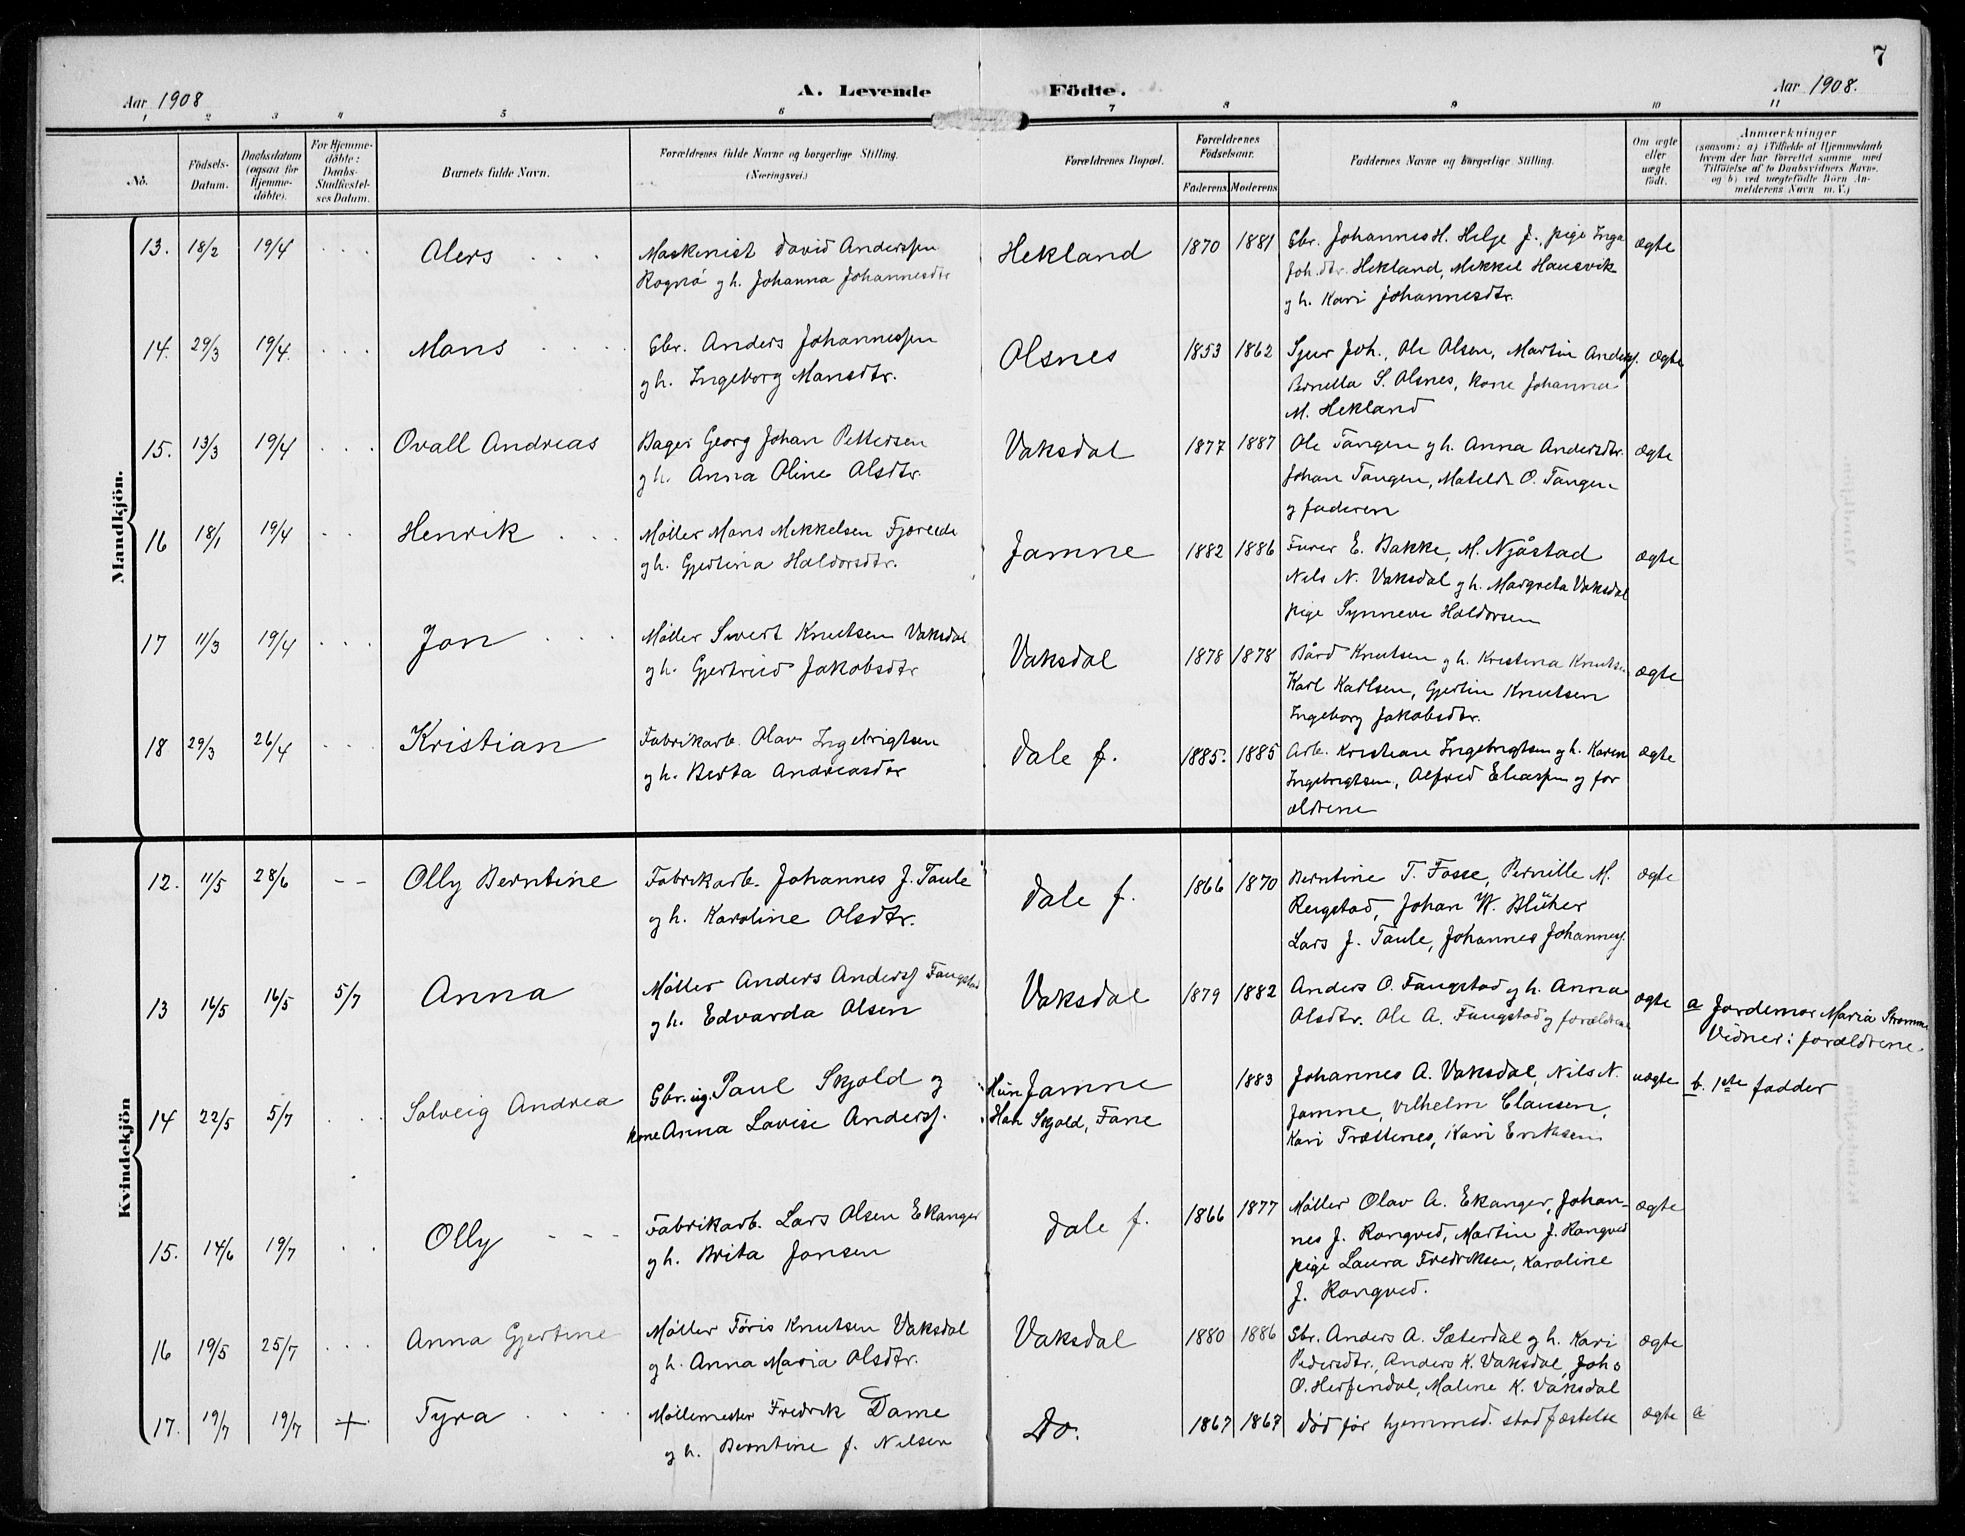 7
Aar 1908
A. Levende Födte.
Aar 1908.
1 2 3 4 5 6 7 8 9 10 11
No.
Födsels-
Datum.
Daabsdatum
(ogsaa for
Hjemme-
döbte).
For Hjemme-
döbte:
Daabs-
Stadfæstel-
ses Datum.
Barnets fulde Navn.
Forældrenes fulde Navne og borgerlige Stilling.
(Næringsvei.)
Forældrenes Bopæl.
Forældrenes
Födselsaar.
Faderens Moderens
Faddernes Navne og borgerlige Stilling.
Om ægte
eller
uægte
födt.
Anmærkninger
(saasom: a) i Tilfælde af Hjemmedaab
hvem der har forrettet samme, med
Tilföielse af to Daabsvidners Navne.
og b) ved uægtefödte Börn An-
melderens Navn m. V.)
Mandkjön.
13. 18/2 19/4 . . . Alers . . . .
Maskinist David Anderssen
Rognø g h. Johanna Johannesdtr
Hekland 1870 1881
Gbr. Johannes H. Helje J., pige Inga
Joh.dtr. Hekland, Mikkel Hausvik
g h. Kari Johannesdtr.
ægte
14. 29/3 19/4. . . . Mans . . . .
Gbr. Anders Johannessen
g h. Ingeborg Mansdtr.
Olsnes 1853 1862
Sjur Joh., Ole Olsen, Martin Anderss.
Pernella S. Olsnes, kone Johanna
M. Hekland
ægte
15. 13/3 19/4 . . . Ovall Andreas
Bager Georg Johan Pettersen
g h. Anna Oline Olsdtr.
Vaksdal 1877 1887
Ole Tangen g h. Anna Andersdtr.
Johan Tangen, Matilde O. Tangen
og faderen
ægte
16 18/1 19/4 . . Henrik . . .
Møller Mans Mikkelsen Fjereide
g h. Gjertina Haldorsdtr.
Jamne 1882 1886
Furer E. Bakke, M. Njåstad
Nils N. Vaksdal g h. Margreta Vaksdal
pige Synneve Haldorsen
ægte
17 11/3 19/4 . . . Jon . . .
Møller Sivert Knutsen Vaksdal
g h. Gjertrud Jakobsdtr
Vaksdal 1878 1878
Bård Knutsen g h. Kristina Knutsen
Karl Karlsen, Gjertin Knutsen
Ingeborg Jakobsdtr.
ægte
18 29/3 26/4 . . . Kristian
Fabrikarb. Olav Ingebrigtsen
g h. Berta Andreasdtr
Dale f. 1885. 1885
Arb. Kristian Ingebrigtsen g h. Karen
Ingebrigtsen, Alfred Eliassen og for
ældrene
ægte
Kvindekjön
12. 11/5 28/6 - - Olly Berntine
Fabrikarb. Johannes J. Taule
g h. Karoline Olsdtr.
Dale f. 1866 1870
Berntine T. Fosse, Pernille M.
Rengstad, Johan W. Blüher
Lars J. Taule, Johannes Johanness.
ægte
13 16/5 16/5 5/7 Anna
Møller Anders Anderss Faugstad
g h. Edvarda Olsen
Vaksdal 1879 1882
Anders O. Faugstad g h. Anna
Olsdtr. Ole A. Faugstad og forældrene
ægte
a Jordemor Maria Strømme
Vidner: forældrene.
14 22/5 5/7 . . Solveig Andrea
Gbr. ug. Paul Skjold og
kone Anna Lovise Anderss.
Hun Jamne
Han Skjold, Fane
1883
Johannes A. Vaksdal, Nils N.
Jamne, Vilhelm Clausen,
Kari Trættenes, Kari Eriksen
uægte
b. 1ste fadder
15. 14/6 19/7 . . Olly - - -
Fabrikarb. Lars Olsen Ekanger
g h. Brita Jonsen
Dale f. 1866 1877
Møller Olav A. Ekanger, Johan-
nes J. Rongved, Martin J. Rongved
pige Laura Fredriksen, Karoline
J. Rongved.
ægte
16 19/5 25/7 . . . Anna Gjertine
Møller Føris Knutsen Vaksdal
g h. Anna Maria Olsdtr.
Vaksdal 1880 1886
Gbr. Anders A. Sæterdal g h. Kari
Pedersdtr., Anders K. Vaksdal, Johs
O. Herfindal, Maline K. Vaksdal
ægte
17. 19/7 19/7 + Tyra . . . .
Møllemester Fredrik Dame
g h. Berntine f. Nilsen
Do. 1867 1867
Død før hjemmed. stadfæstelse
ægte a